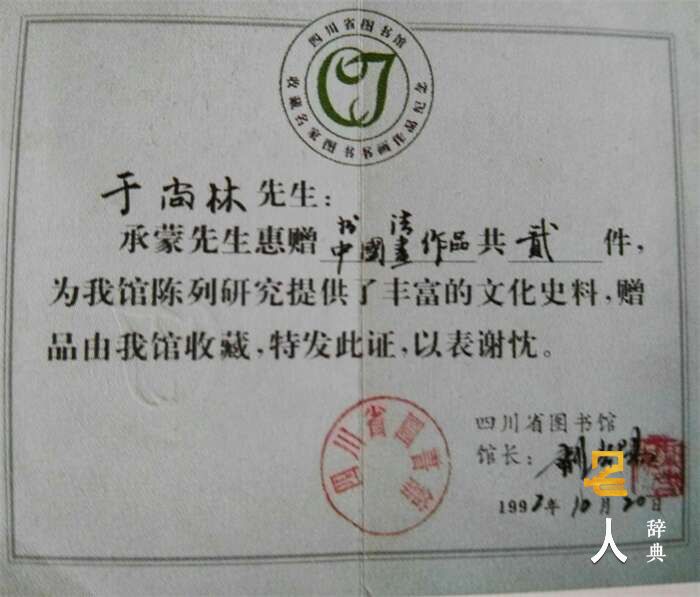 四川省图书馆
收藏名家图书书画作品纪念
于尚林先生：
书法
承蒙先生惠赠中國畫作品共貳件，
为我馆陈列研究提供了丰富的文化史料，赠
品由我馆收藏，特发此证，以表谢忱。
四川省圖書館
四川省图书馆
馆长：
1997年10月20日
名人
辞典